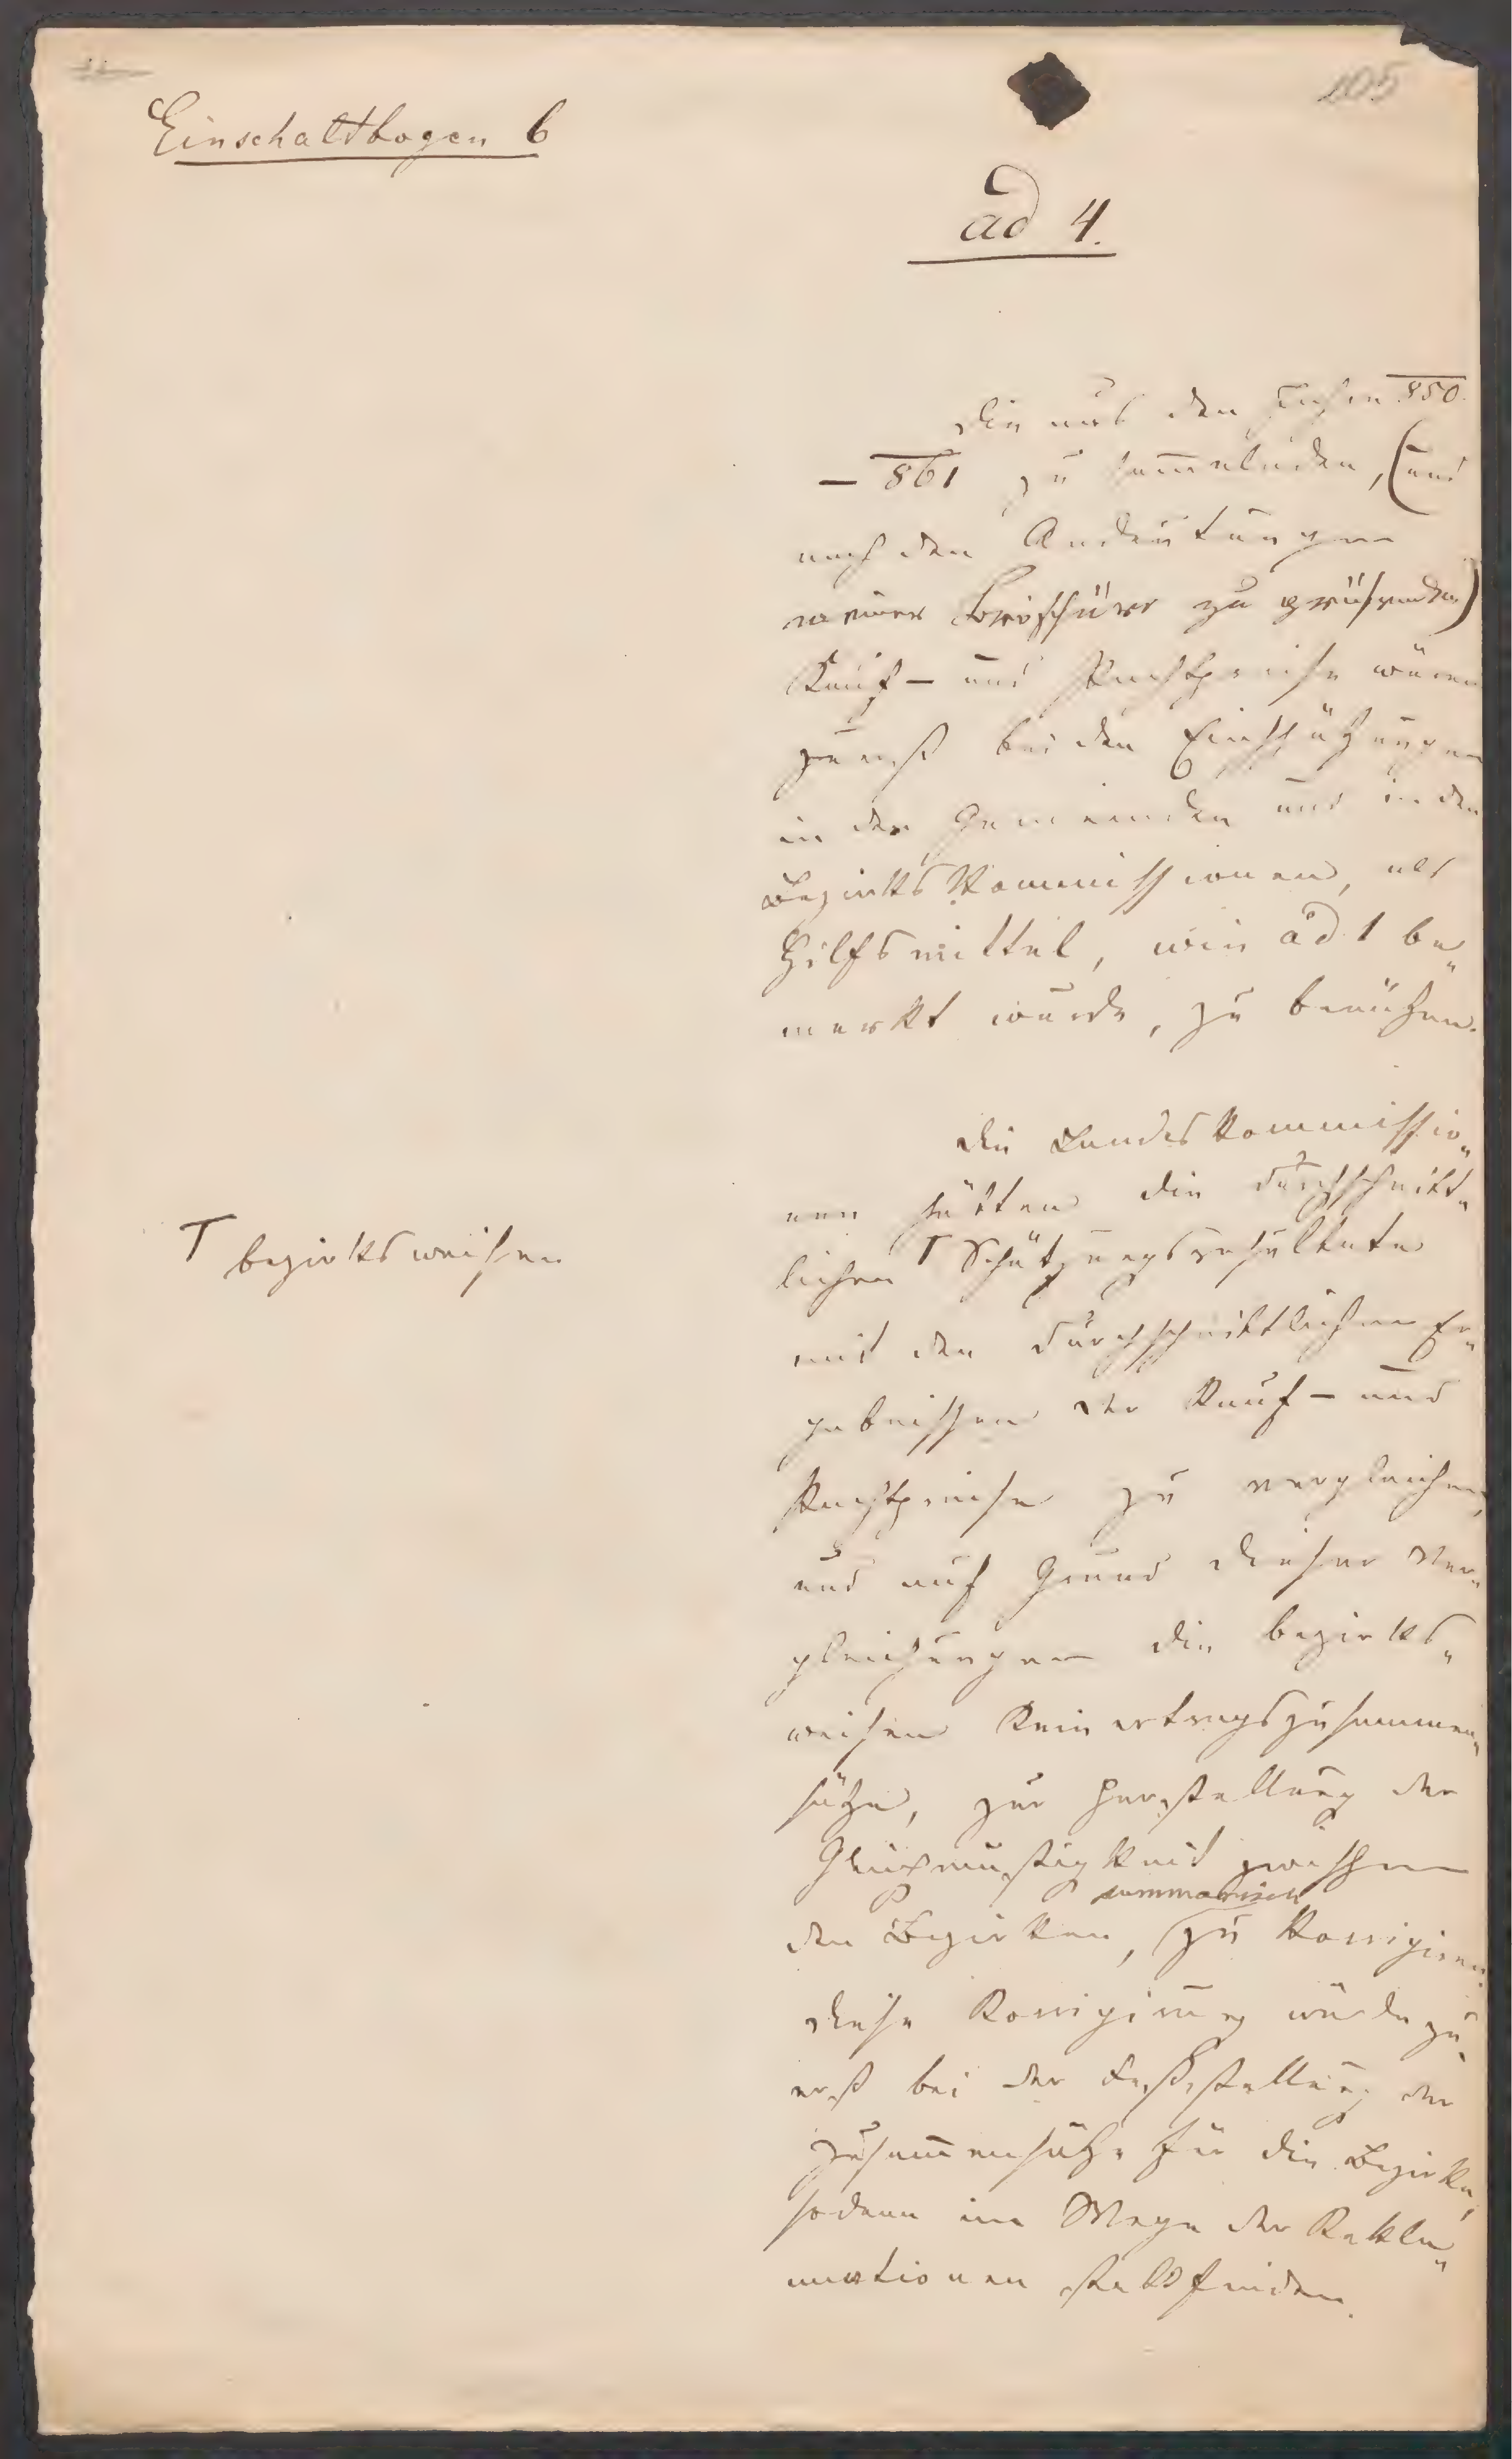 105
Einschaltbogen 6
ad 4.
Die aus den Jahren 850.
— 861 zu sam̅elnden, (und
nach den Andeutungen
meiner Broschüre zu prüfenden)
Kauf- und Pachtpreise wären
zuerst bei den Einschätzungen
in den Gemeinden und in den
Bezirks Kommissionen, als
Hilfsmittel, wie ad 1 be„
merkt wurde, zu benützen.
Die Landes Kommissio„
nen hätten die durchschnitt„
lichen T Schätzungsresultate
T bezirksweisen
mit den durchschnittlichen Er„
gebnissen der Kauf- und
Pachtpreise zu vergleichen,
und auf Grund dieser Ver„
gleichungen die bezirks„
weisen Reinertragszusammen„
sätze, zur Herstellung der
Gleichmäßigkeit zwischen
den Bezirken, summarisch zu korrigiren.
Diese Korrigirung würde zu„
erst bei der Feststellung der
Zusam̅ensätze für die Bezirke,
sodann im Wege der Rekla„
mationen stattfinden.